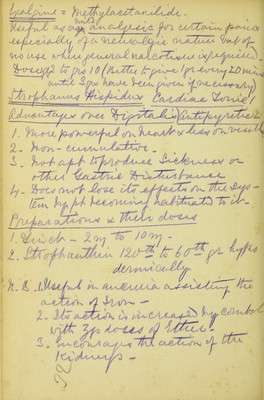 Exalgine = Methylacetanilide.
Useful as a mild analgesic for certain pains
especially of a neuralgic nature but of
no use when general narcotism is required.
Doses 2 to gr (better to give 1 gr every 20 mins
until 3 gr have been given if necessary)
Strophanus Hispidus Cardiac Tonic &
Advantages over Digitalis Antipyretic
1. More powerful on heart & less on vessels
2. Non-cumulative.
3. Not apt to produce Sickness or
other Gastric Disturbance
4. Does not lose its effects on the sys-
tem by pt becoming habituated to it.
Preparations & their doses
1. Tinct - 2 m to 10 m.
2. Strophanthin 120th to 60th gr hypo
dermically
N.B. 1. Useful in anaemia assisting the
action of Iron -
2. Its action is increased by comb
with doses of Ether.
3. Encourages the action of the
Kidneys -